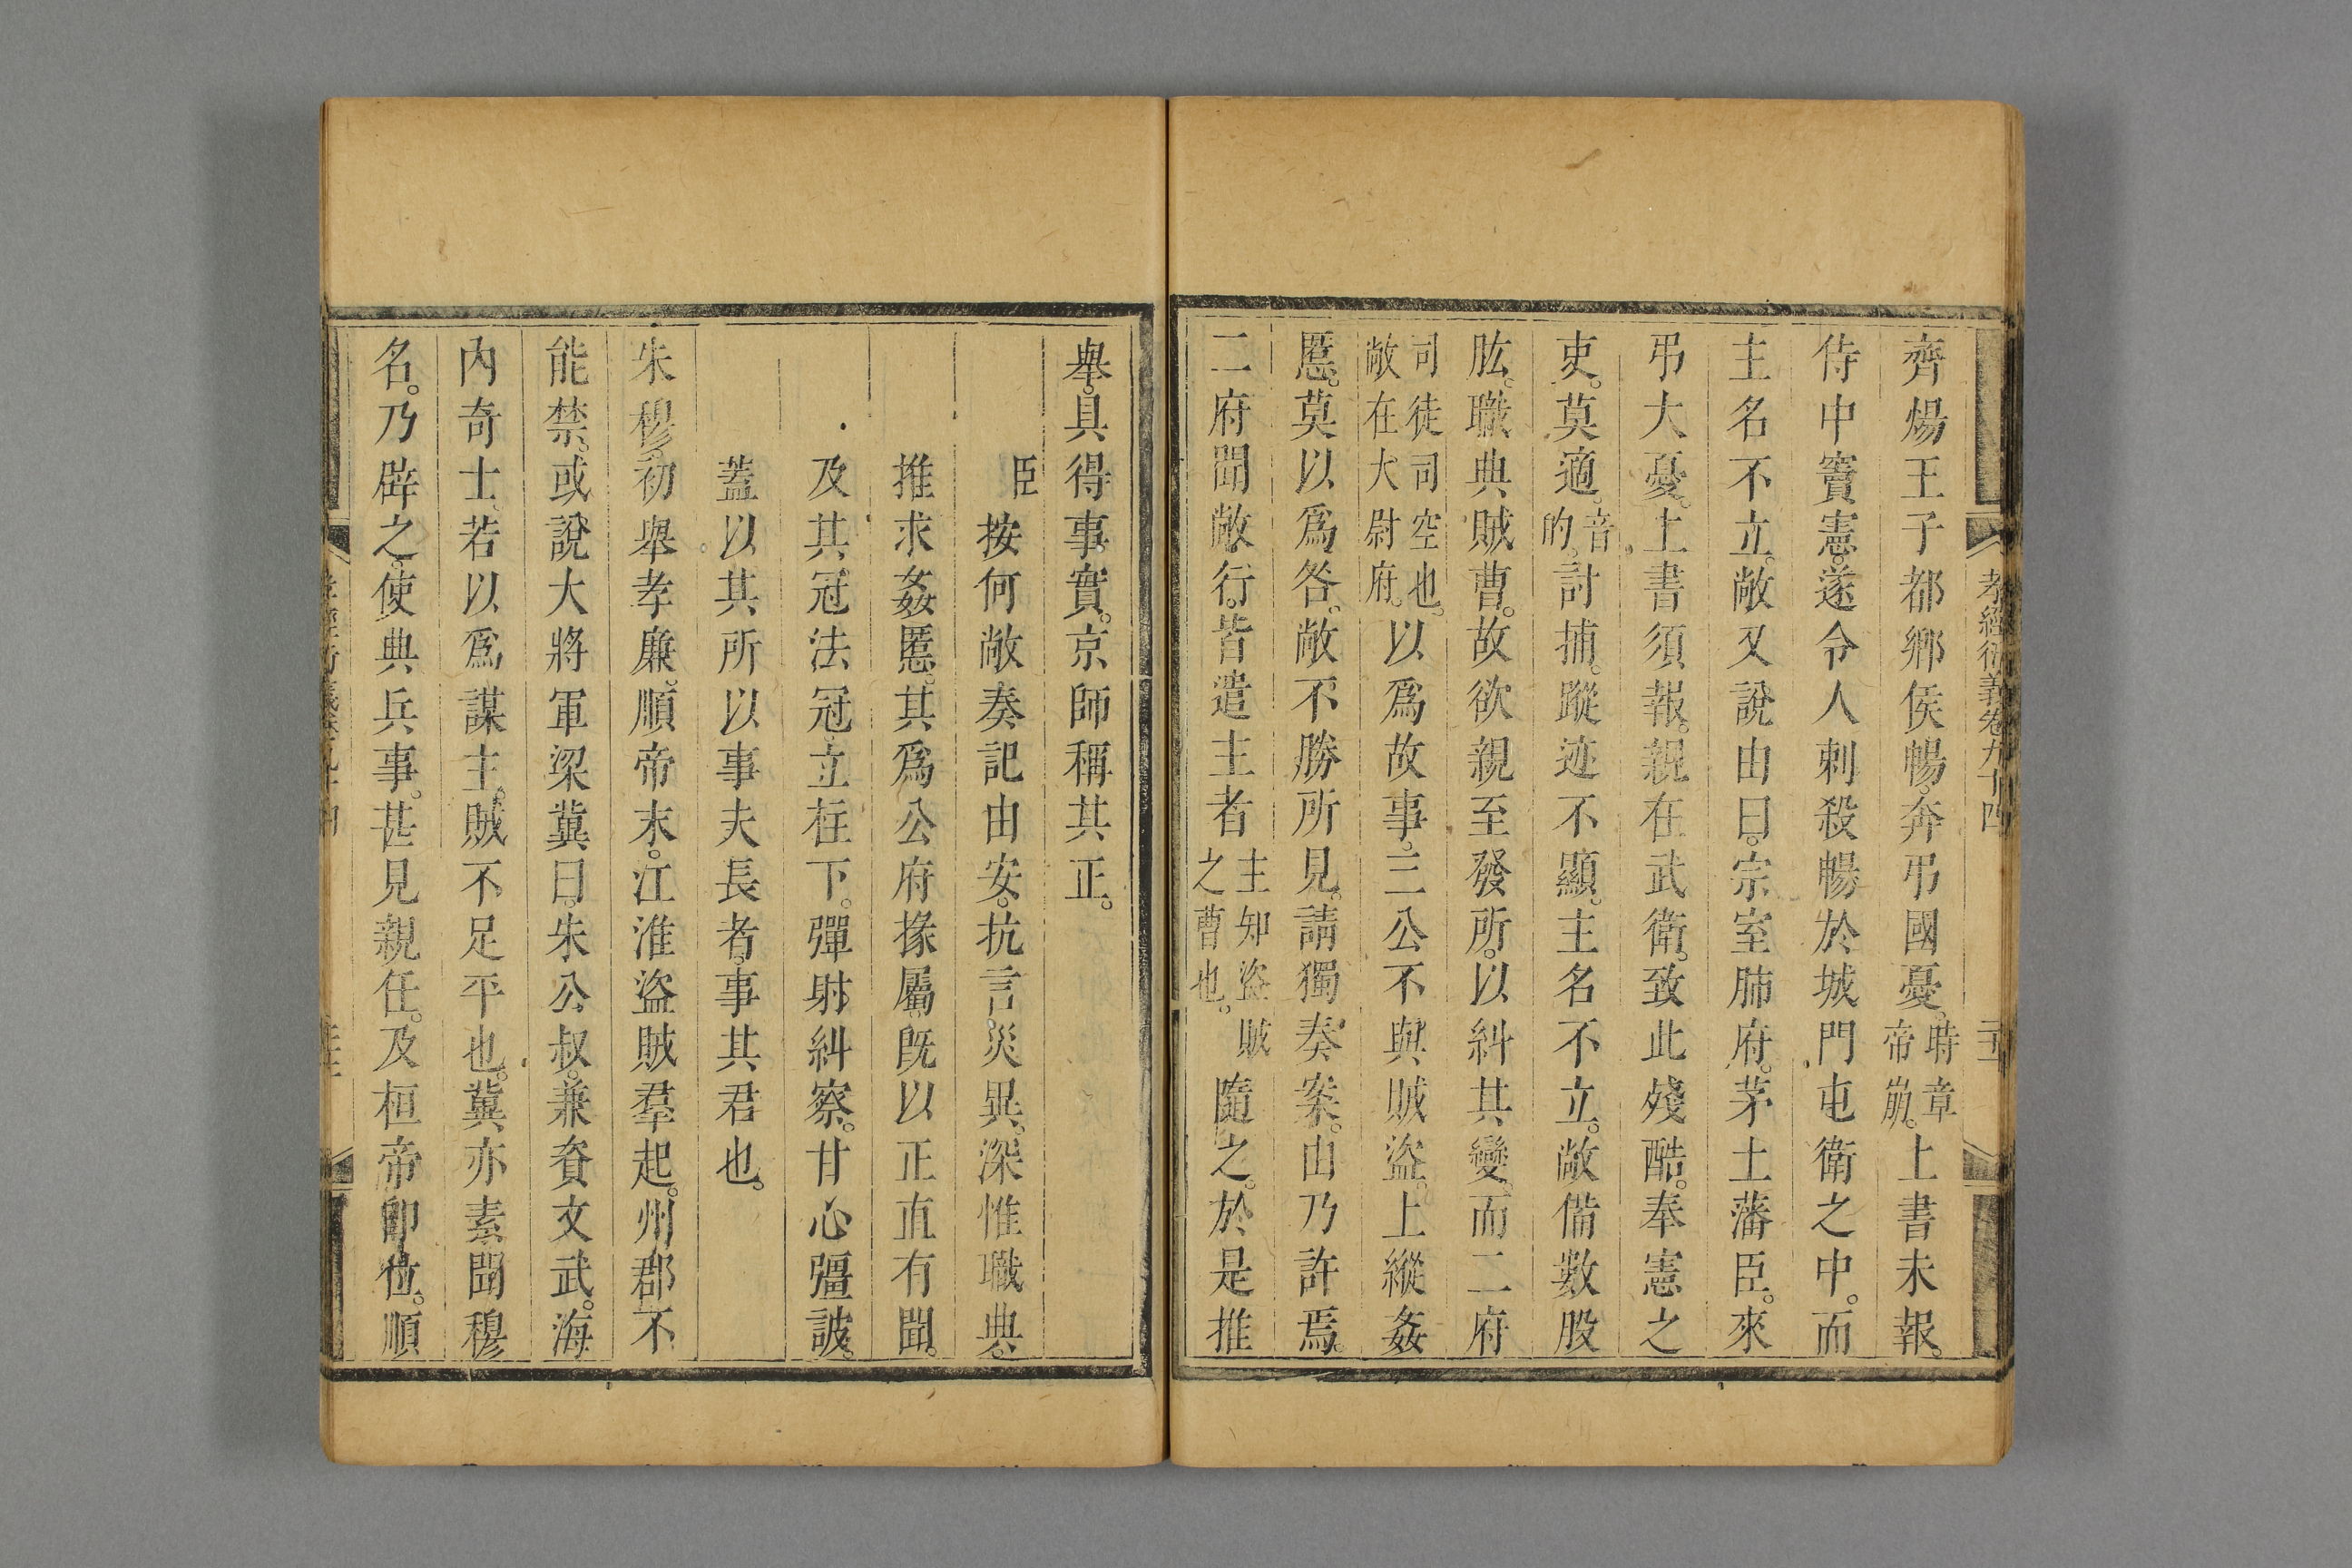 孝經衍義卷九十四
齊煬王子都鄉侯暢。奔弔國憂。時章帝崩。上書未報。
侍中竇憲。遂令人刺殺暢於城門屯衛之中。而
主名不立。敞又說由曰。宗室肺府。茅土藩臣。來
弔大憂。上書須報。親在武衛。致此殘酷。奉憲之
吏。莫適。音的。討捕。蹤迹不顯。主名不立。敞備數股
肱。職典賊曹。故欲親至發所。以糾其變。而二府
司徒司空也。敞在大尉府。以爲故事。三公不與賊盜。上縱姦
慝。莫以爲咎。敞不勝所見。請獨奏案。由乃許焉。
二府聞敞行。皆遣主者主知盜賊之曹也。隨之。於是推
舉。具得事實。京師稱其正。
臣按何敞奏記由安。抗言災異。深惟職典。
推求姦慝。其爲公府掾屬。既以正直有聞。
及其冠法冠。立柱下。彈射糾察。甘心彊詖。
蓋以其所以事夫長者。事其君也。
朱穆。初舉孝廉。順帝末。江淮盜賊羣起。州郡不
能禁。或說大將軍梁冀曰。朱公叔。兼資文武。海
內奇士。若以爲謀主。賊不足平也。冀亦素聞穆
名。乃辟之。使典兵事。甚見親任。及桓帝卽位。順